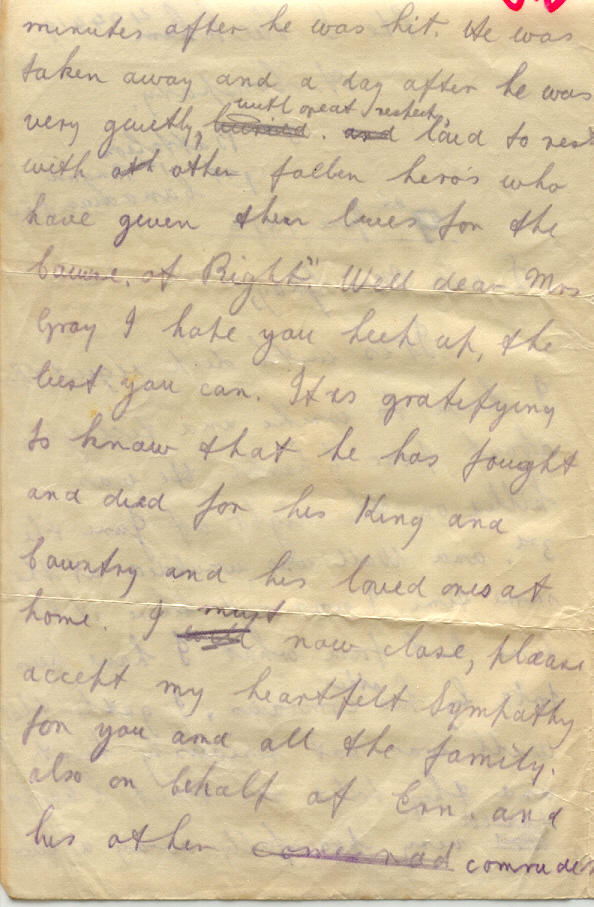 minutes after he was hit. He was
taken away and a day after he was
with great respect,
very quietly, buried. and laid to rest
with oth other fallen hero's who
have given their lives for the
Cause. of Right." Well dear Mrs
Gray I hope you keep up, the
best you can. It is gratifying
to know that he has fought
and died for his King and
Country and his loved ones at
must
home. I now close, please
accept my heartfelt Sympathy
for you and all the family.
also on behalf of Ern. and
his other comrades